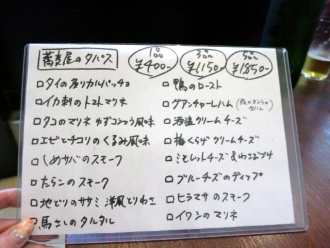 蕎麦屋のタパス
1品 ¥400-
3品 ¥1150-
5品 ¥1850-
□タイの香りカルパッチョ
□イカ刺のトマトマリネ
□タコのマリネ ゆずコショウ風味
□エビとチコリのくるみ風味
□しめサバのスモーク
□たらこのスモーク
□地どりのササミ 洋風とりわさ
□馬さしのタルタル
□鴨のロースト
□グアンチャーレハム
□酒盗クリームチーズ
□梅くらげクリームチーズ
□ブルーチーズのディップ
□ヒラマサのスモーク
□イワシのマリネ